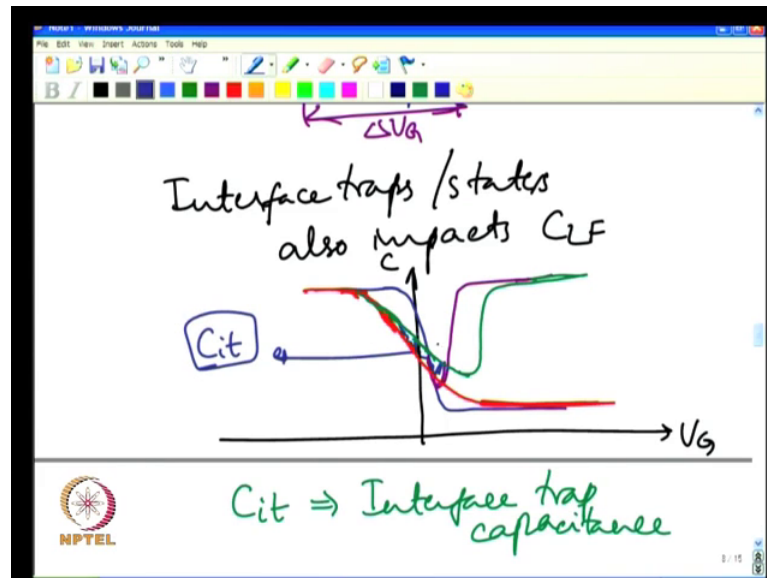 Note1 - Windows Journal
File Edit View Insert Actions Tools Help
B I
ΔVG
Interface traps/states
also impacts CLF
C
Cit
VG
Cit ⇒ Interface trap
capacitance
NPTEL
8/15